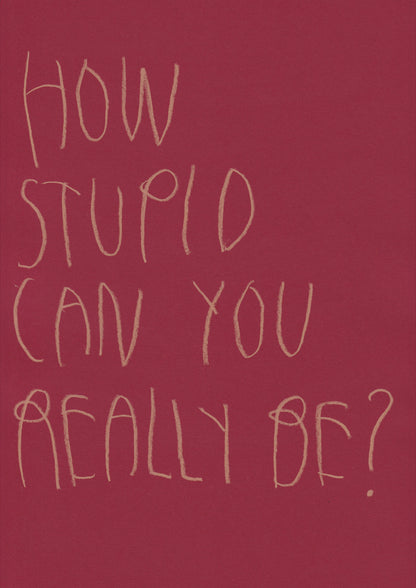 HOW
STUPID
CAN YOU
REALLY BE?